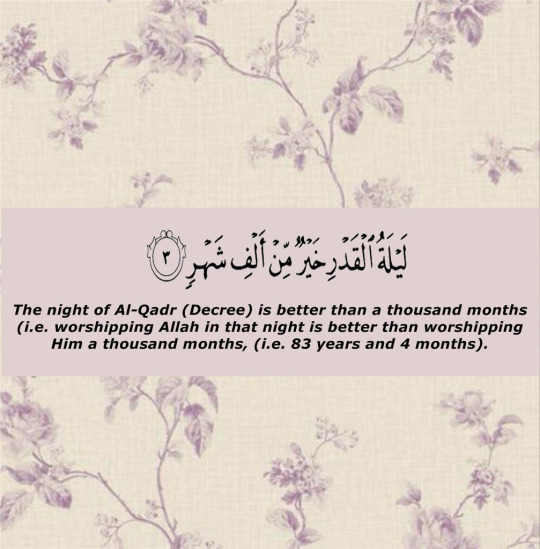 لَيْلَةُ ٱلْقَدْرِ خَيْرٌ مِّنْ أَلْفِ شَهْرٍ ٣
The night of Al-Qadr (Decree) is better than a thousand months
(i.e. worshipping Allah in that night is better than worshipping
Him a thousand months, (i.e. 83 years and 4 months).